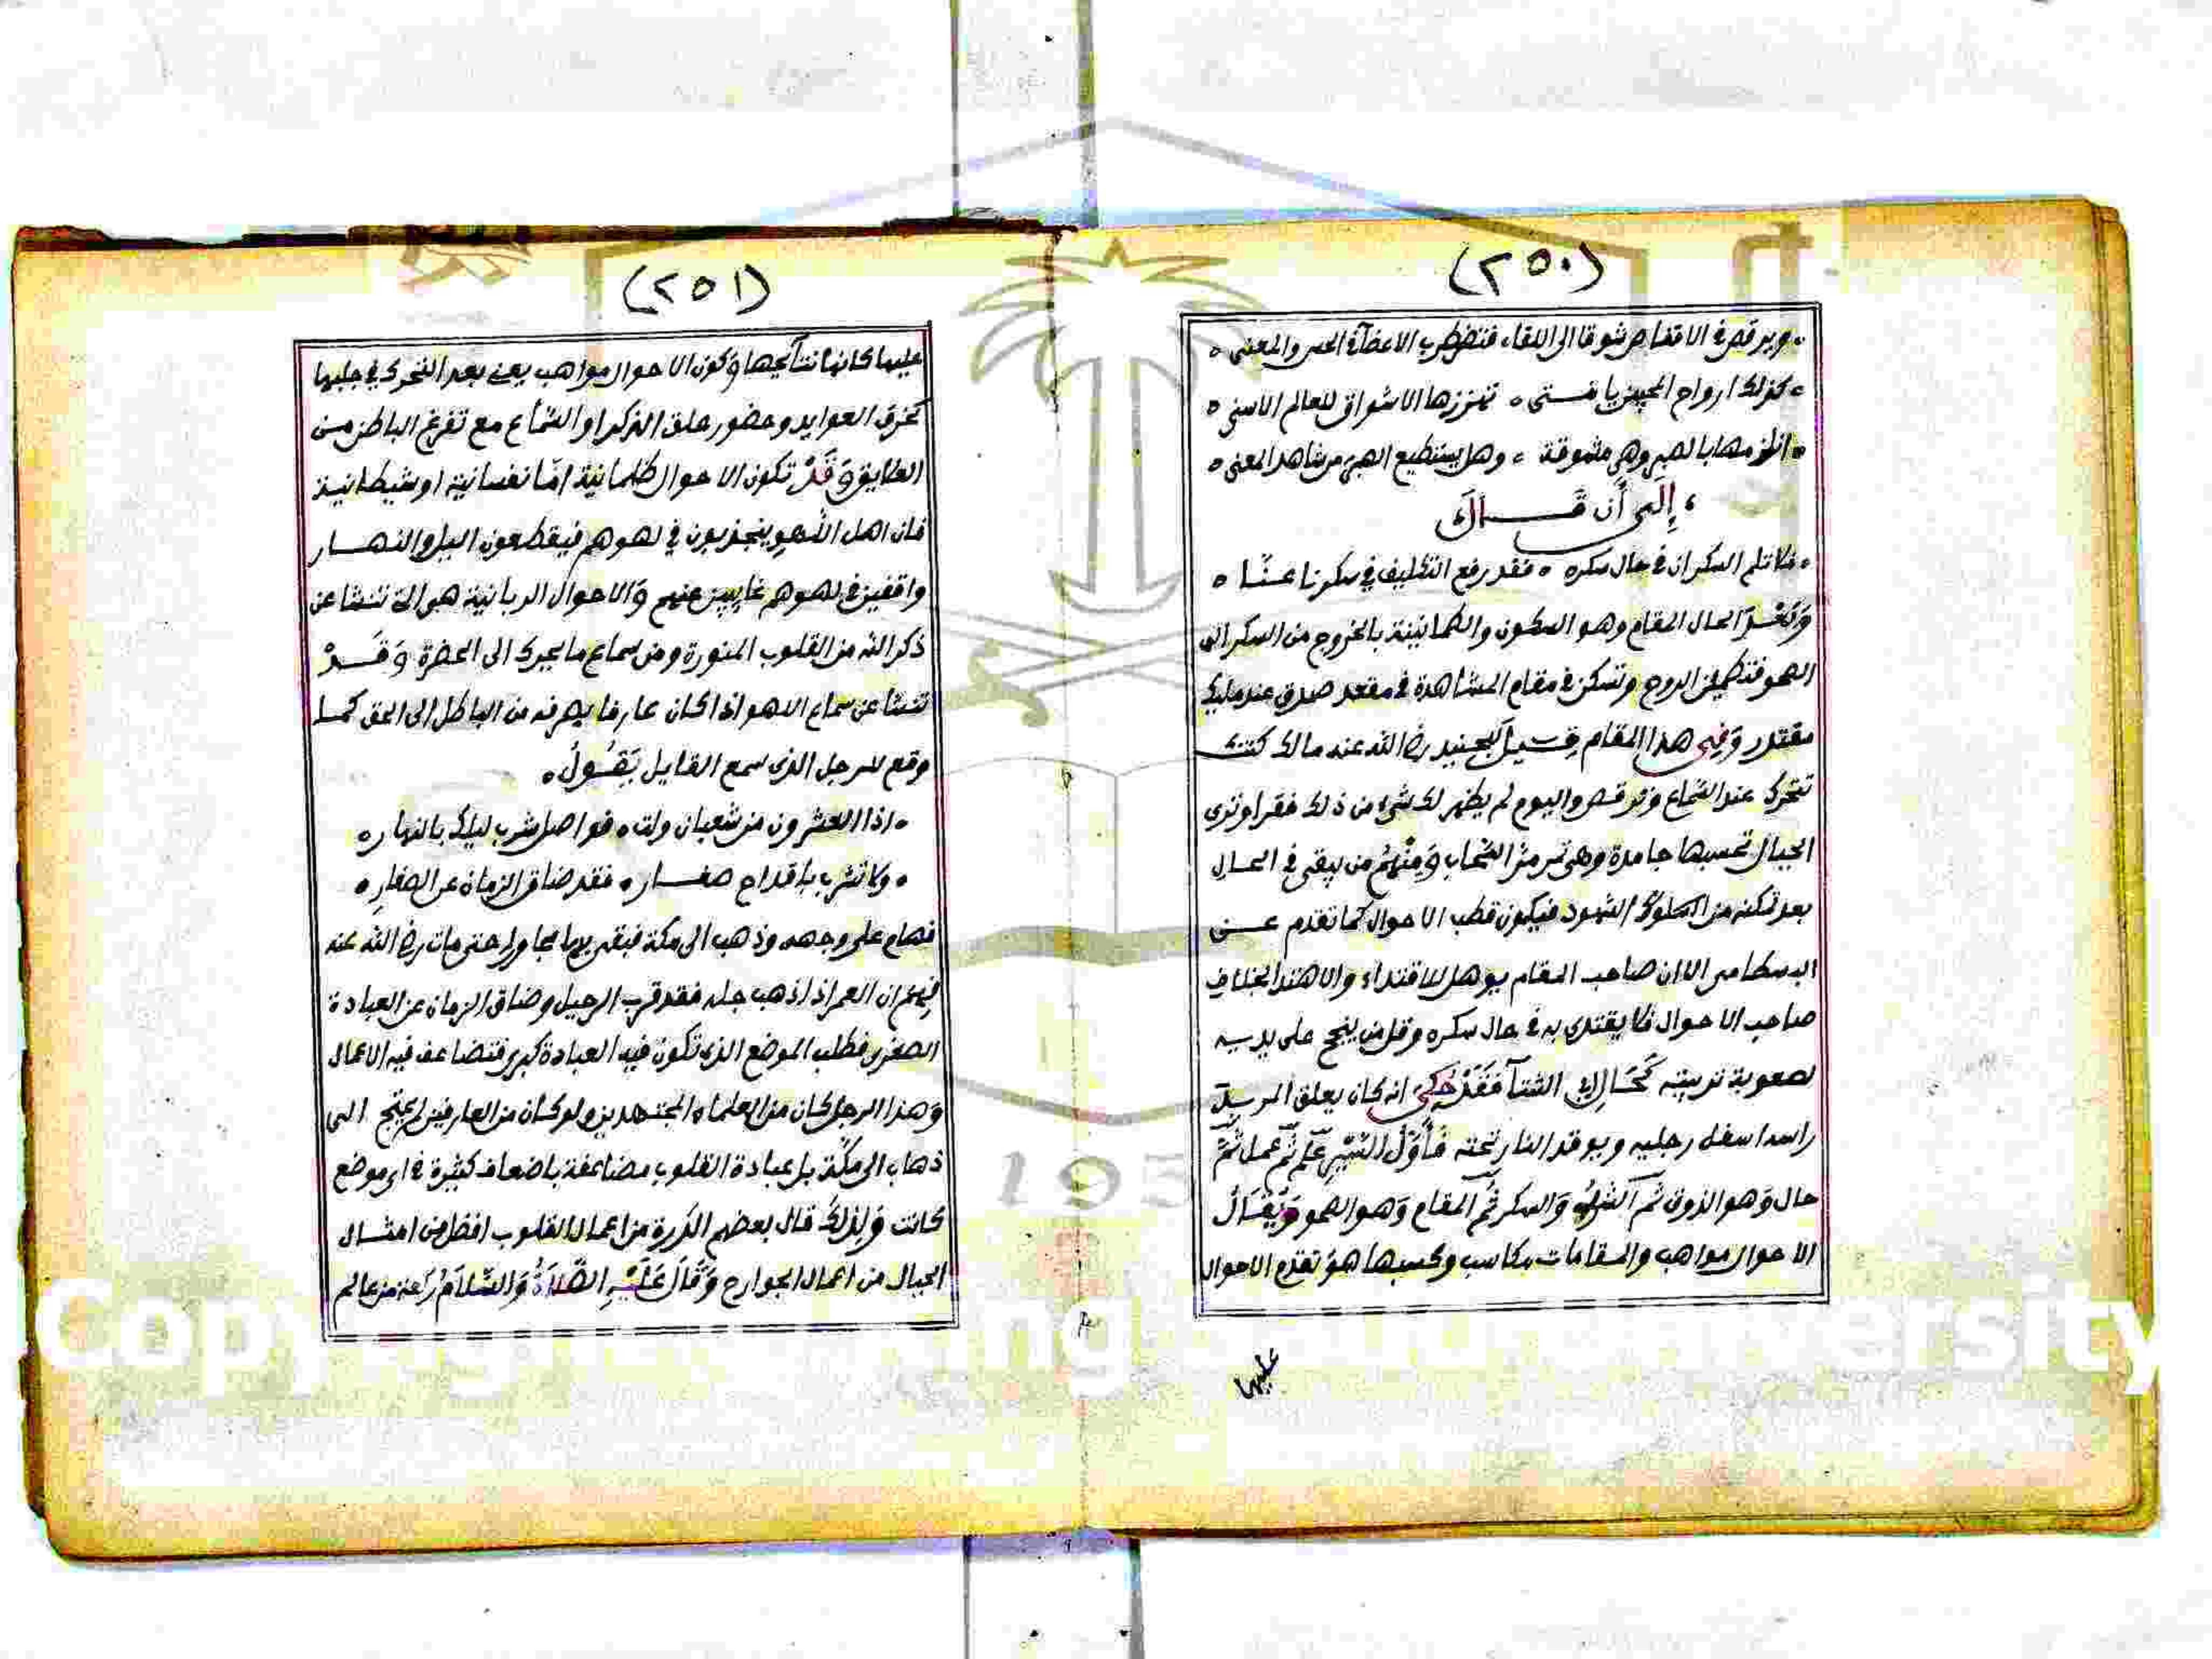 (٢٥٠)
ويرقص في الاقفاص شوقا الى اللقاء فتضطرب الاعضآء في الحس والمعنى
كذلك ارواح المحبين يا فتى تهززها الاشواق للعالم الاسنى
انلزمها بالصبر وهي مشوقة وهل يستطيع الصبر من شاهد المعنى
إلى أن قال
فلا تلم السكران في حال سكره فقد رفع التكليف في سكرنا عنا
وَبَعْدَ الحال المقام وهو السكون والطمانينة بالخروج من السكر الى
الصحو فتطمئن الروح وتسكن في مقام المشاهدة في مقعد صدق عند مليك
مقتدر وَفِي هذا المقام قيل للجنيد رضي الله عنه مالك كنت
تتحرك عند السماع وترقص واليوم لم يظهر لك شئ من ذلك فقرا وترى
الجبال تحسبها جامدة وهي تمر مر السحاب وَمِنْهُمْ من يبقى في الحال
بعد تمكنه من السلوك الشهود فيكون قطب الاحوال كما تقدم عن
البسطامى الا ان صاحب المقام يوهل للاقتداء والاهتدا بخلاف
صاحب الاحوال فلا يقتدى به في حال سكره وقل من ينجح على يديه
لصعوبة تربيته كَحَالِ الشتآ فَقَدْ حُكِيَ انه كان يعلق المريد
راسه اسفل رجليه ويوقد النار تحته فَأَوَّلُ السَّيْرِ علم ثُمَّ عمل ثُمَّ
حال وَهو الذوق ثُمَّ الشرب وَالسكر ثُمَّ المقام وَهو الصحو وَيُقَالُ
الاحوال مواهب والمقامات مكاسب وكسبها هو تقدم الاحوال
عليها
(٢٥١)
عليها كانها نتآئجها وَكون الاحوال مواهب يعنى بعد التحرك في جلبها
كخرق العوايد وحضور حلق الذكر او السماع مع تفرغ الباطن من
العلايق وَقَدْ تكون الاحوال ظلمانية امّا نفسانية او شيطانية
فان اهل اللهو ينجذبون في لهوهم فيقطعون الليل والنهار
واقفين في لهوهم غايبين عنهم وَالاحوال الربانية هو التي تنشا عن
ذكر الله من القلوب المنورة ومن سماع ما يحرك الى الحضرة وَقَدْ
تنشا عن سماع اللهو اذا كان عارفا يصرفه من الباطل الى الحق كما
وقع للرجل الذى سمع القايل يَقُولُ
اذا العشرون من شعبان ولت فواصل شرب ليلك بالنهار
ولا تشرب باقداح صغار فقد ضاق الزمان عن الصغارِ
فهام على وجهه وذهب الى مكة فبقى بها مجاورا حتى مات رضي الله عنه
فهم ان العمر اذا ذهب جله فقد قرب الرحيل وضاق الزمان عن العبادة
الصغرى فطلب الموضع الذى تكون فيه العبادة كبرى فتضاعف فيه الاعمال
وَهذا الرجل كان من العلماء المجتهدين ولو كان من العارفين لم يحتج الى
ذهاب الى مكّة بل عبادة القلوب مضاعفة باضعاف كثيرة في اى موضع
كانت وَلِذلِكَ قال بعضهم الذرة من اعمال القلوب افضل من امثال
الجبال من اعمال الجوارح وَقَالَ عَلَيْهِ الصَّلاَةُ وَالسَّلاَمُ ركعة من عالم